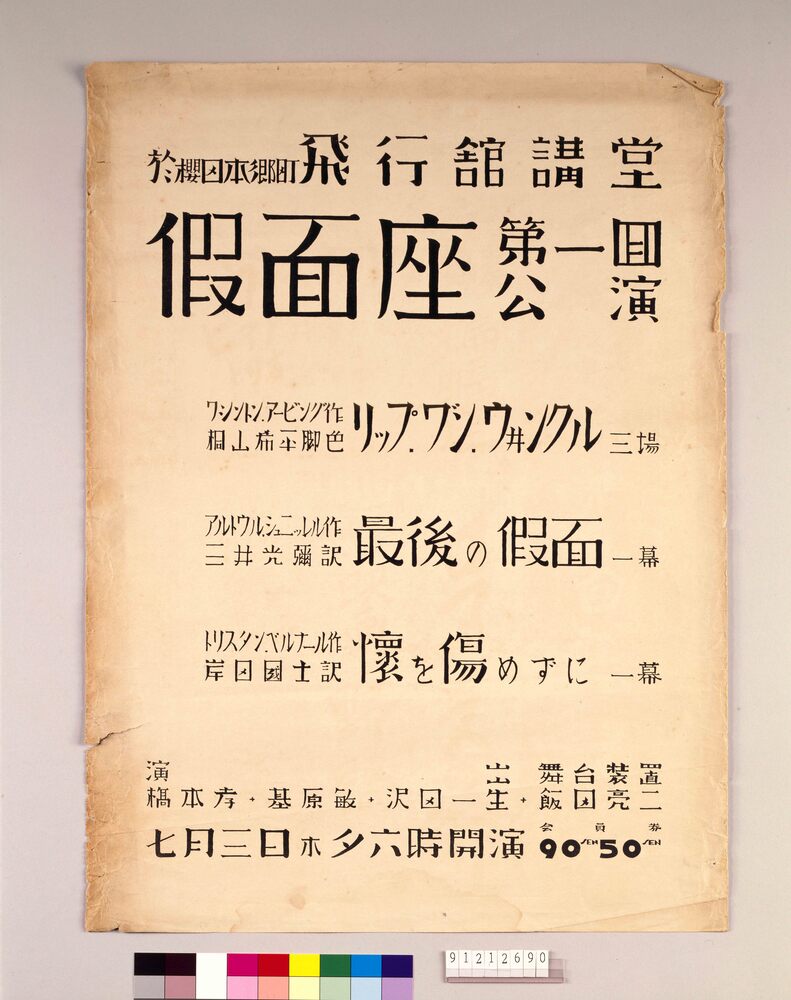 於櫻田本郷町 飛行館講堂
假面座 第一囘公演
ワシントン.アービング作
桐山希平脚色
リップ.ワン.ウ井ンクル 三場
アルトウル.シュニッレル作
三井光彌訳
最後の假面 一幕
トリスタン.ベルナール作
岸田國士訳
懷を傷めずに 一幕
演出 舞台装置
橋本孝・基原敏・沢田一生・飯田亮二
七月三日ホ夕六時開演 会員券 90SEN 50SEN
91212690